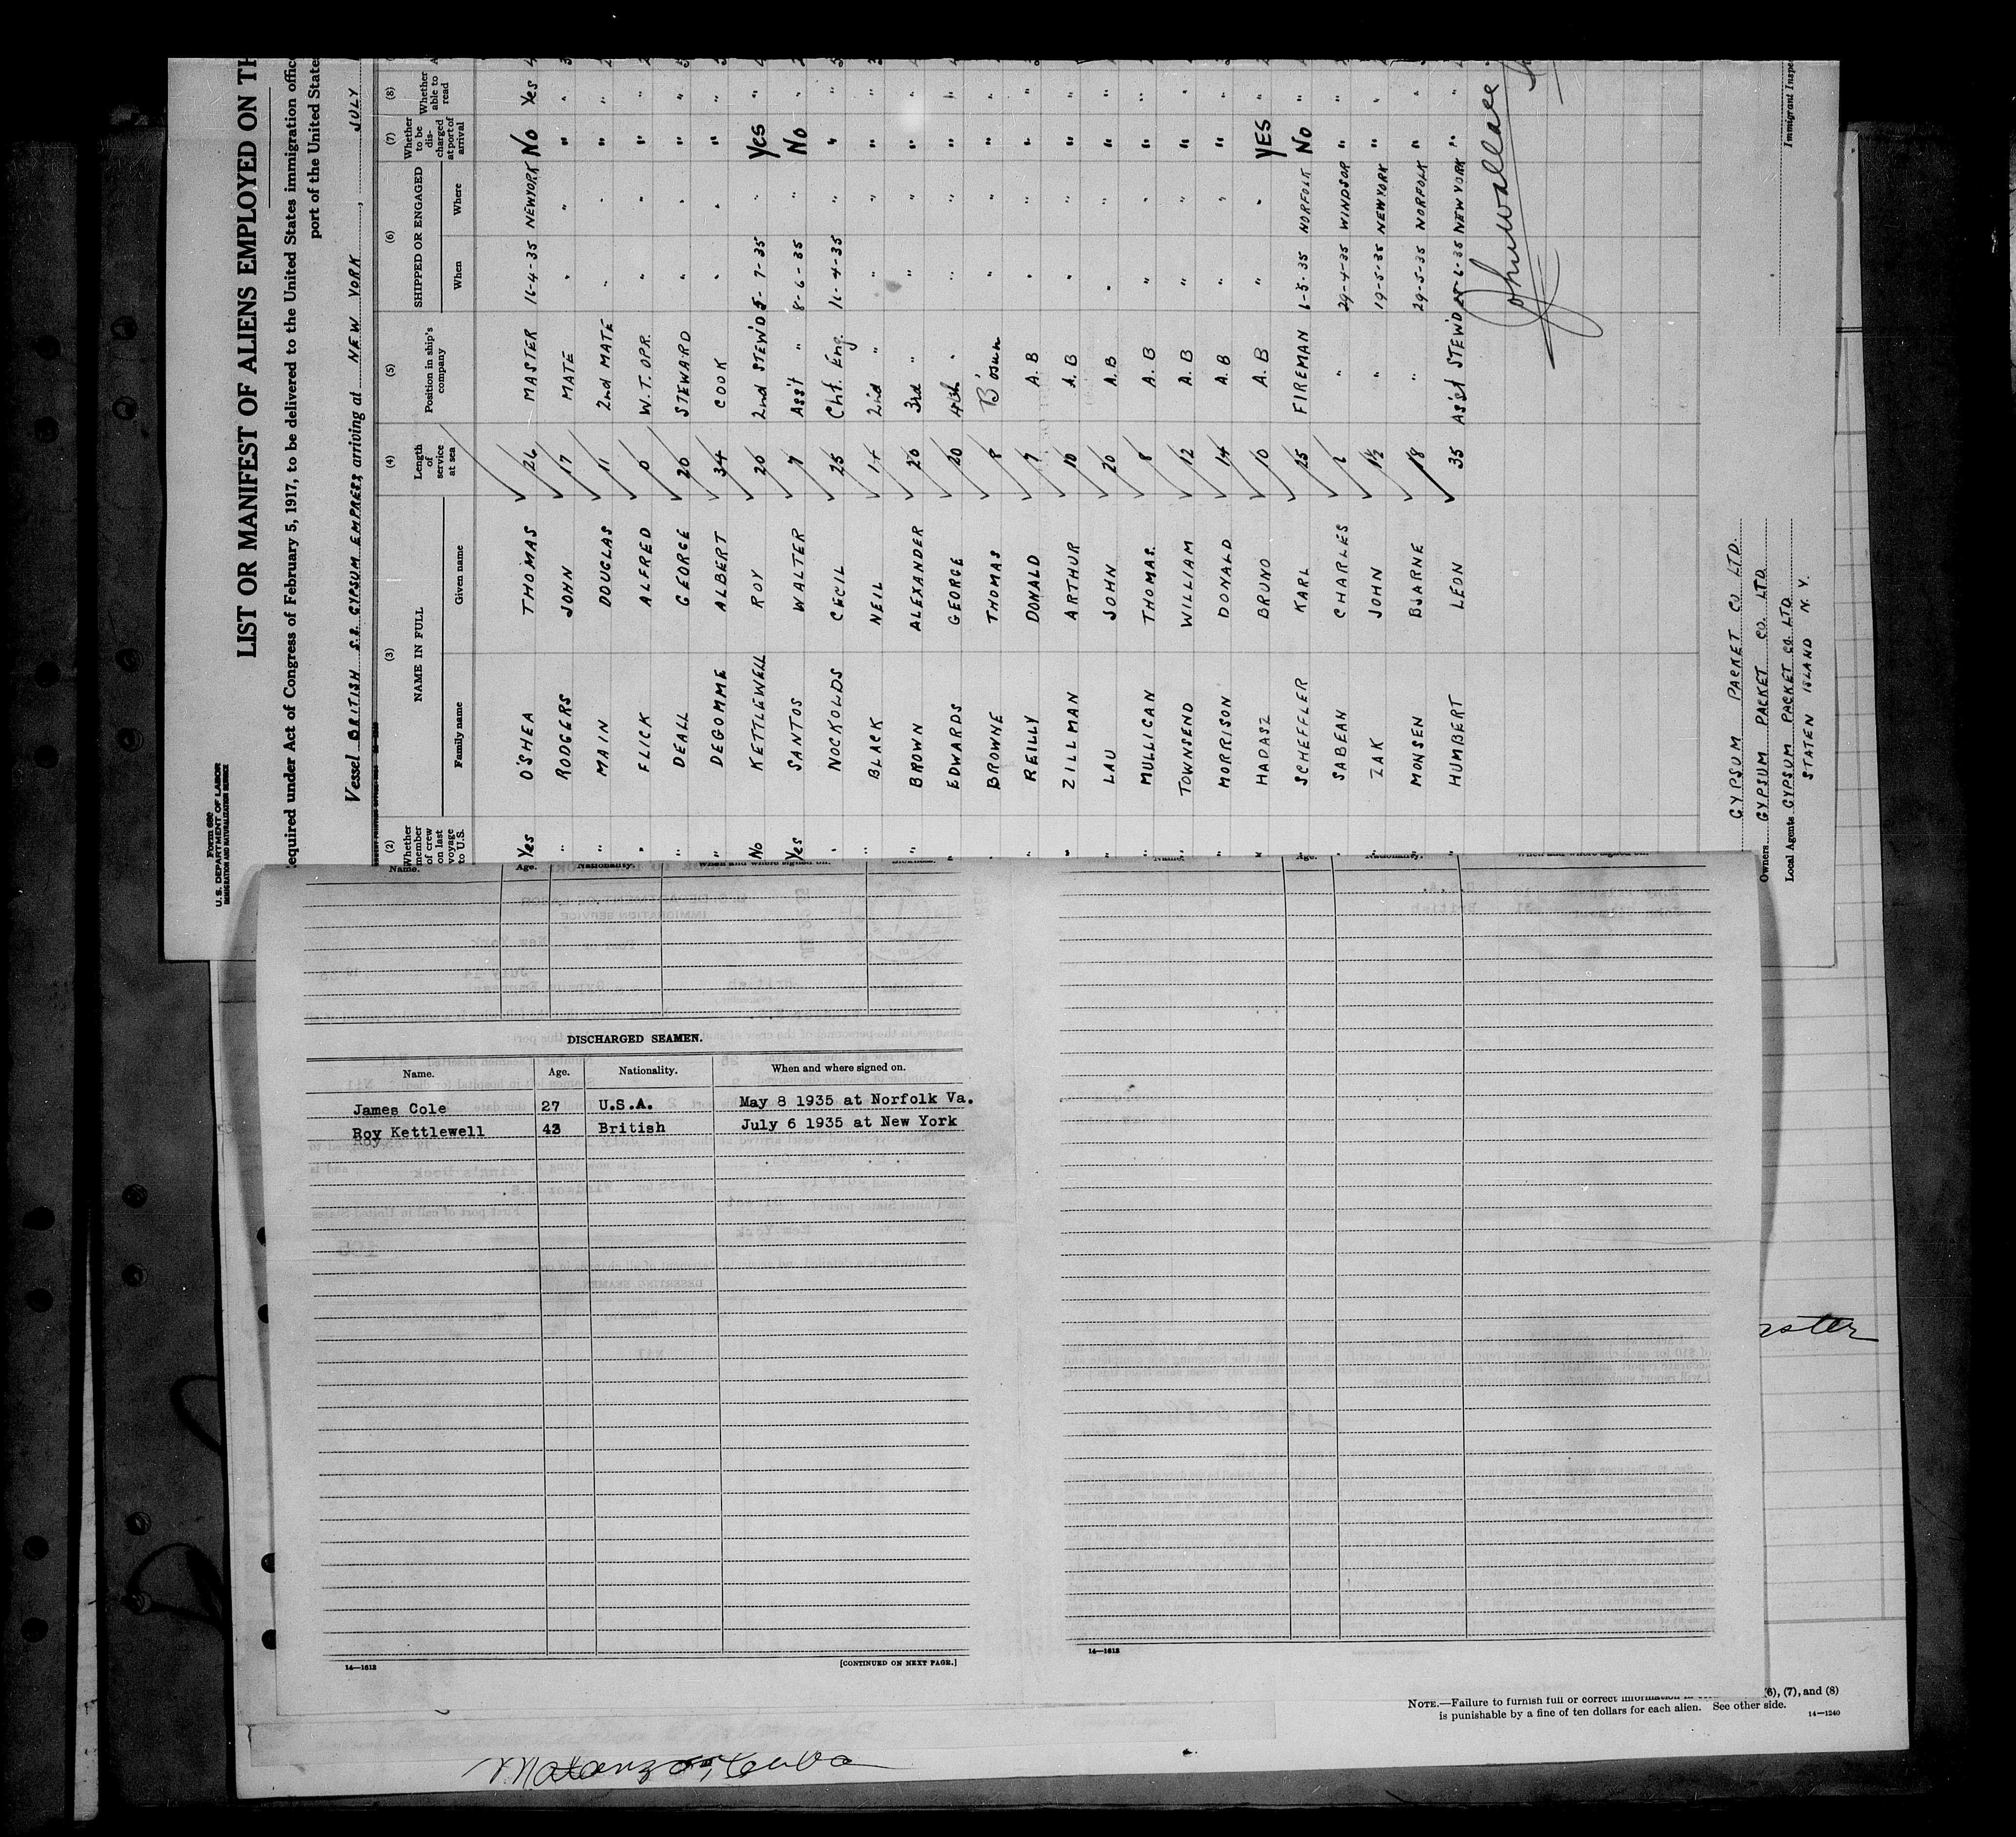 Form 680
U.S. DEPARTMENT OF LABOR
IMMIGRATION AND NATURALIZATION SERVICE
LIST OR MANIFEST OF ALIENS EMPLOYED ON TH
equired under Act of Congress of February 5, 1917, to be delivered to the United States immigration offic
port of the United State
Vessel BRITISH S.S. GYPSUM EMPRESS arriving at NEW YORK , JULY
(2) Whether member of crew on last voyage to U.S. (3) NAME IN FULL Family name Given name (4) Length of service at sea (5) Position in ship's company (6) SHIPPED OR ENGAGED When Where (7) Whether to be discharged at port of arrival (8) Whether able to read
Yes O'SHEA THOMAS 26 MASTER 16-4-35 NEWYORK No Yes
" RODGERS JOHN 17 MATE " " " "
" MAIN DOUGLAS 11 2nd MATE " " " "
" FLICK ALFRED W.T. OPR. " " " "
" DEALL GEORGE 20 STEWARD " " " "
" DEGOMME ALBERT 34 COOK " " " "
No KETTLEWELL ROY 20 2nd STEW'D 5-7-35 " Yes "
Yes SANTOS WALTER 7 Ass't " 8-6-35 " No "
" NOCKOLDS CECIL 25 Chf. Eng. 16-4-35 " " "
" BLACK NEIL 14 2nd " " " " "
" BROWN ALEXANDER 20 3rd " " " " "
" EDWARDS GEORGE 20 4th " " " " "
" BROWNE THOMAS 8 B'osun " " " "
" REILLY DONALD 7 A.B " " " "
" ZILLMAN ARTHUR 10 A.B " " " "
" LAU JOHN 20 A.B " " " "
" MULLIGAN THOMAS. 8 A.B " " " "
" TOWNSEND WILLIAM 12 A.B " " " "
" MORRISON DONALD 14 A.B " " " "
" HADASZ BRUNO 10 A.B " " YES "
" SCHEFFLER KARL 25 FIREMAN 1-5-35 NORFOLK No "
" SABEAN CHARLES " 29-4-35 WINDSOR " "
" ZAK JOHN 1½ " 19-5-35 NEWYORK " "
" MONSEN BJARNE 18 " 29-5-35 NORFOLK " "
" HUMBERT LEON 35 Ass't STEW'D 6-35 NEW YORK " "
John Wallace
GYPSUM PACKET CO LTD.
Owners GYPSUM PACKET CO. LTD
Local Agents GYPSUM PACKET CO. LTD
STATEN ISLAND N.Y.
Immigrant Inspe
Name. Age. Nationality. When and where signed on.
DISCHARGED SEAMEN.
Name. Age. Nationality. When and where signed on.
James Cole 27 U.S.A. May 8 1935 at Norfolk Va.
Roy Kettlewell 43 British July 6 1935 at New York
14—1612 [CONTINUED ON NEXT PAGE.]
Name. Age. Nationality. When and where signed on.
14—1612
NOTE.—Failure to furnish full or correct information (6), (7), and (8)
is punishable by a fine of ten dollars for each alien. See other side.
14—1240
Matanzas, Cuba